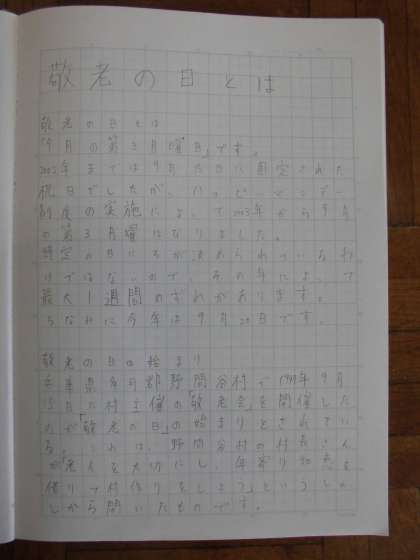 敬老の日とは
敬老の日とは
「9月の第3月曜日」です。
2002年までは9月15日に固定された
祝日でしたが、ハッピーマンデー
制度の実施によって2003年から9月
の第3月曜になりました。
特定の日にちが決められているわ
けではないので、その年によって
最大1週間のずれがあります。
ちなみに今年は9月20日です。
敬老の日の始まり
兵庫県多可郡野間谷村で1947年9月
15日に村主催の「敬老会」を開催した
のが「敬老の日」の始まりとされてい
る。これは、野間谷村の村長さん
が「老人を大切にし、年寄りの知恵を
借りて村作りをしよう」という
から開いたものです。